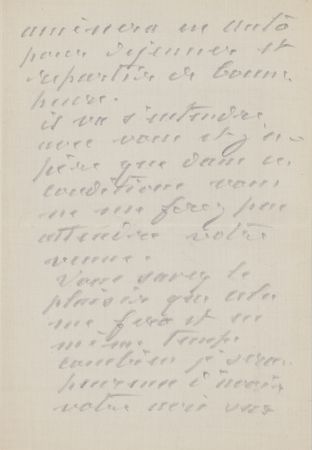 amènera en auto
pour déjeuner et
repartir de bonne
heure.
il va s'entendre
avec vous et j'es-
père que dans ces
conditions vous
ne me ferez pas
attendre votre
venue.
Vous savez le
plaisir que cela
me fera et en
même temps
combien je serai
heureux d'avoir
votre avis sur